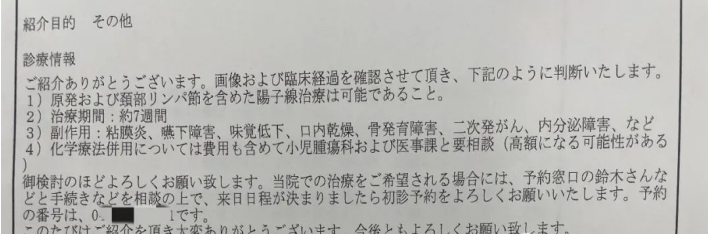 紹介目的 その他
診療情報
ご紹介ありがとうございます。画像および臨床経過を確認させて頂き、下記のように判断いたします。
1）原発および頚部リンパ節を含めた陽子線治療は可能であること。
2）治療期間：約7週間
3）副作用：粘膜炎、嚥下障害、味覚低下、口内乾燥、骨発育障害、二次発がん、内分泌障害、など
4）化学療法併用については費用も含めて小児腫瘍科および医事課と要相談（高額になる可能性がある
）
御検討のほどよろしくお願い致します。当院での治療をご希望される場合には、予約窓口の鈴木さんな
どと手続きなどを相談の上で、来日日程が決まりましたら初診予約をよろしくお願いいたします。予約
の番号は、0 1です。
このたびはご紹介を頂き大変ありがとうございます。今後ともよろしくお願い致します。